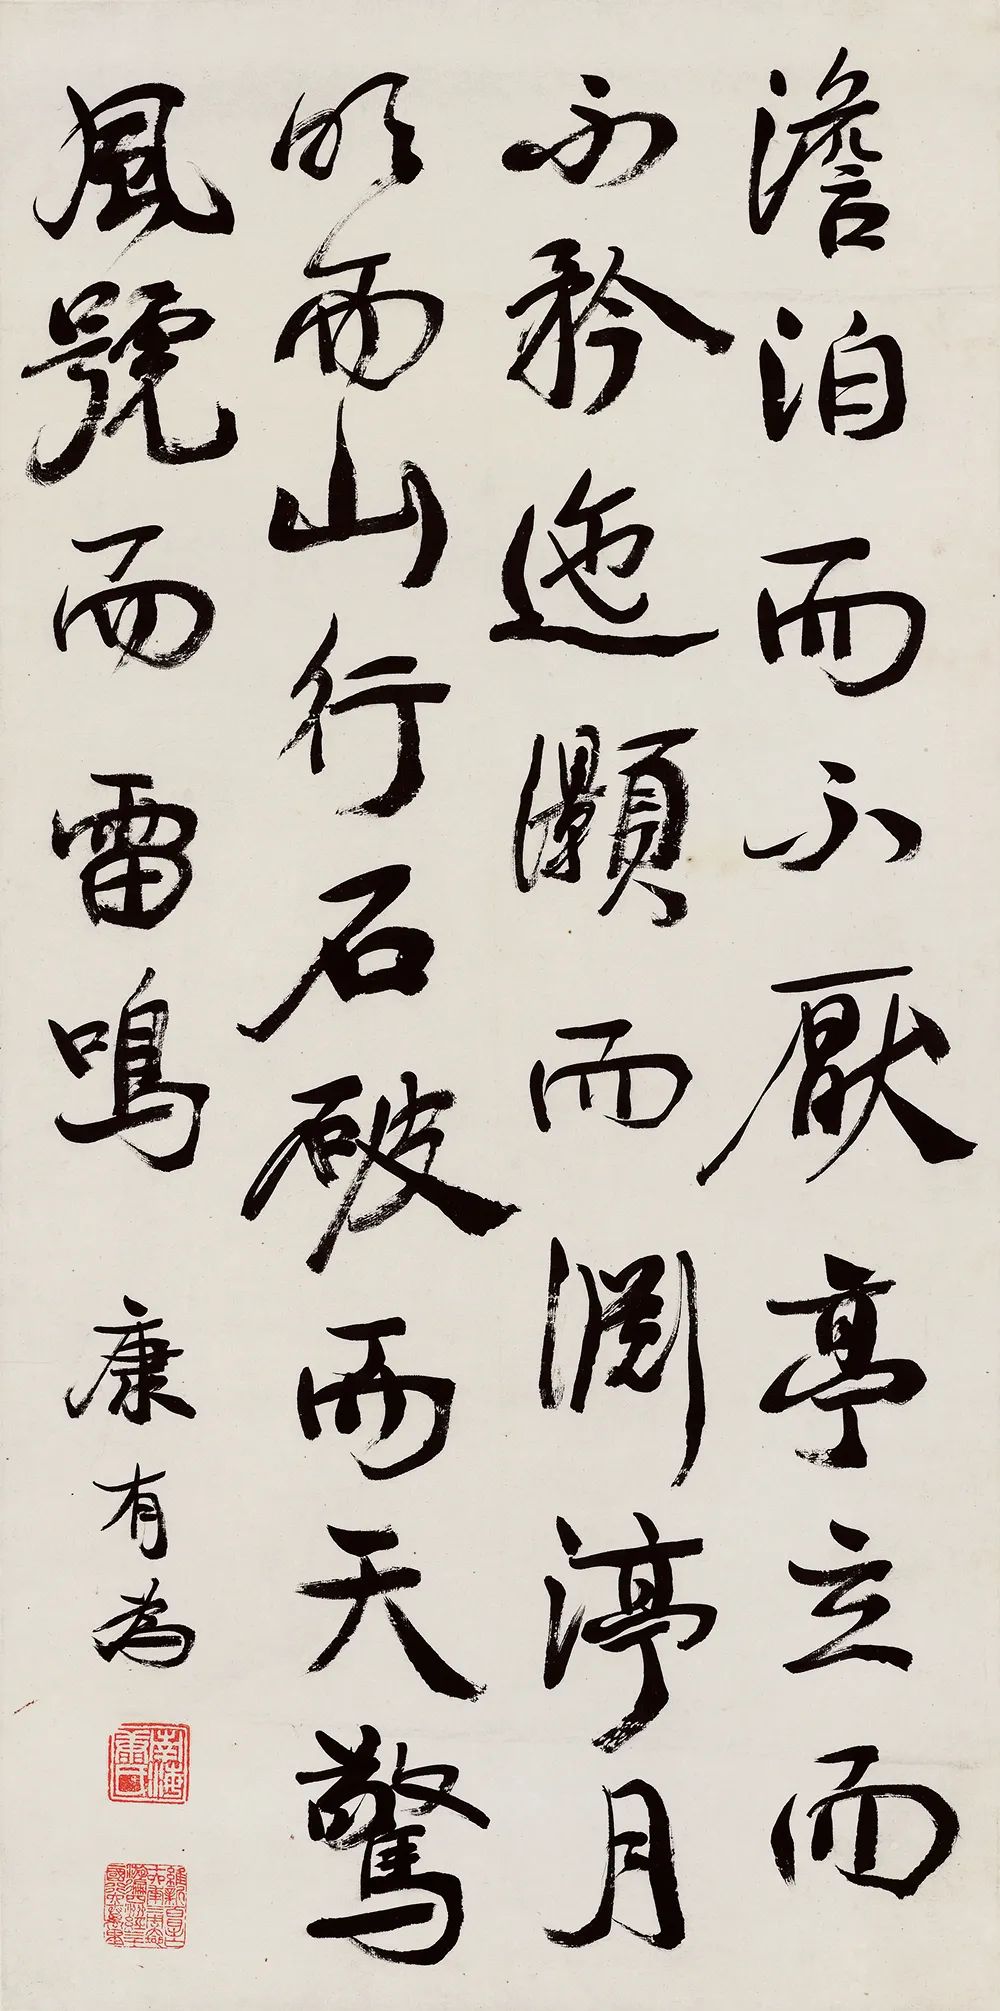 澹泊而不厭亭立而
不矜迤灝而淵渟月
明而山行石破而天驚
風號而雷鳴
康有為
南海康氏